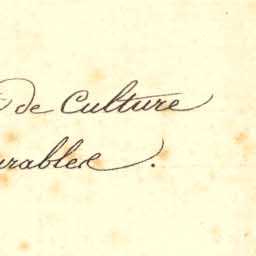 de Culture
urables.